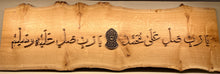 يا رب صل على محمد يا رب صل عليه وسلم